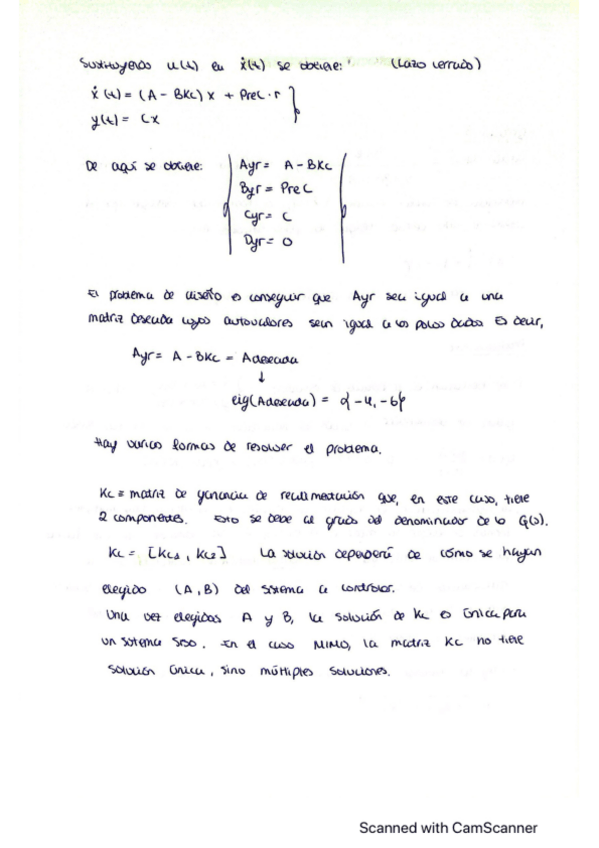 Sustituyendo u(t) en ẋ(t) se obtiene: (Lazo cerrado)
ẋ(t) = (A - BKc) x + PreC · r
y(t) = Cx
De aquí se obtiene:
Ayr = A - BKc
Byr = PreC
Cyr = C
Dyr = 0
El problema de diseño es conseguir que Ayr sea igual a una
matriz deseada cuyos autovalores sean igual a los polos dados. Es decir,
Ayr = A - BKc = Adeseada
↓
eig(Adeseada) = {-4, -6}
Hay varias formas de resolver el problema.
Kc ≡ matriz de ganancia de realimentación que, en este caso, tiene
2 componentes. Esto se debe al grado del denominador de la G(s).
Kc = [Kc1, Kc2] La solución dependerá de cómo se hayan
elegido (A, B) del sistema a controlar.
Una vez elegidas A y B, la solución de Kc es única para
un sistema SISO. En el caso MIMO, la matriz Kc no tiene
solución única, sino múltiples soluciones.
Scanned with CamScanner